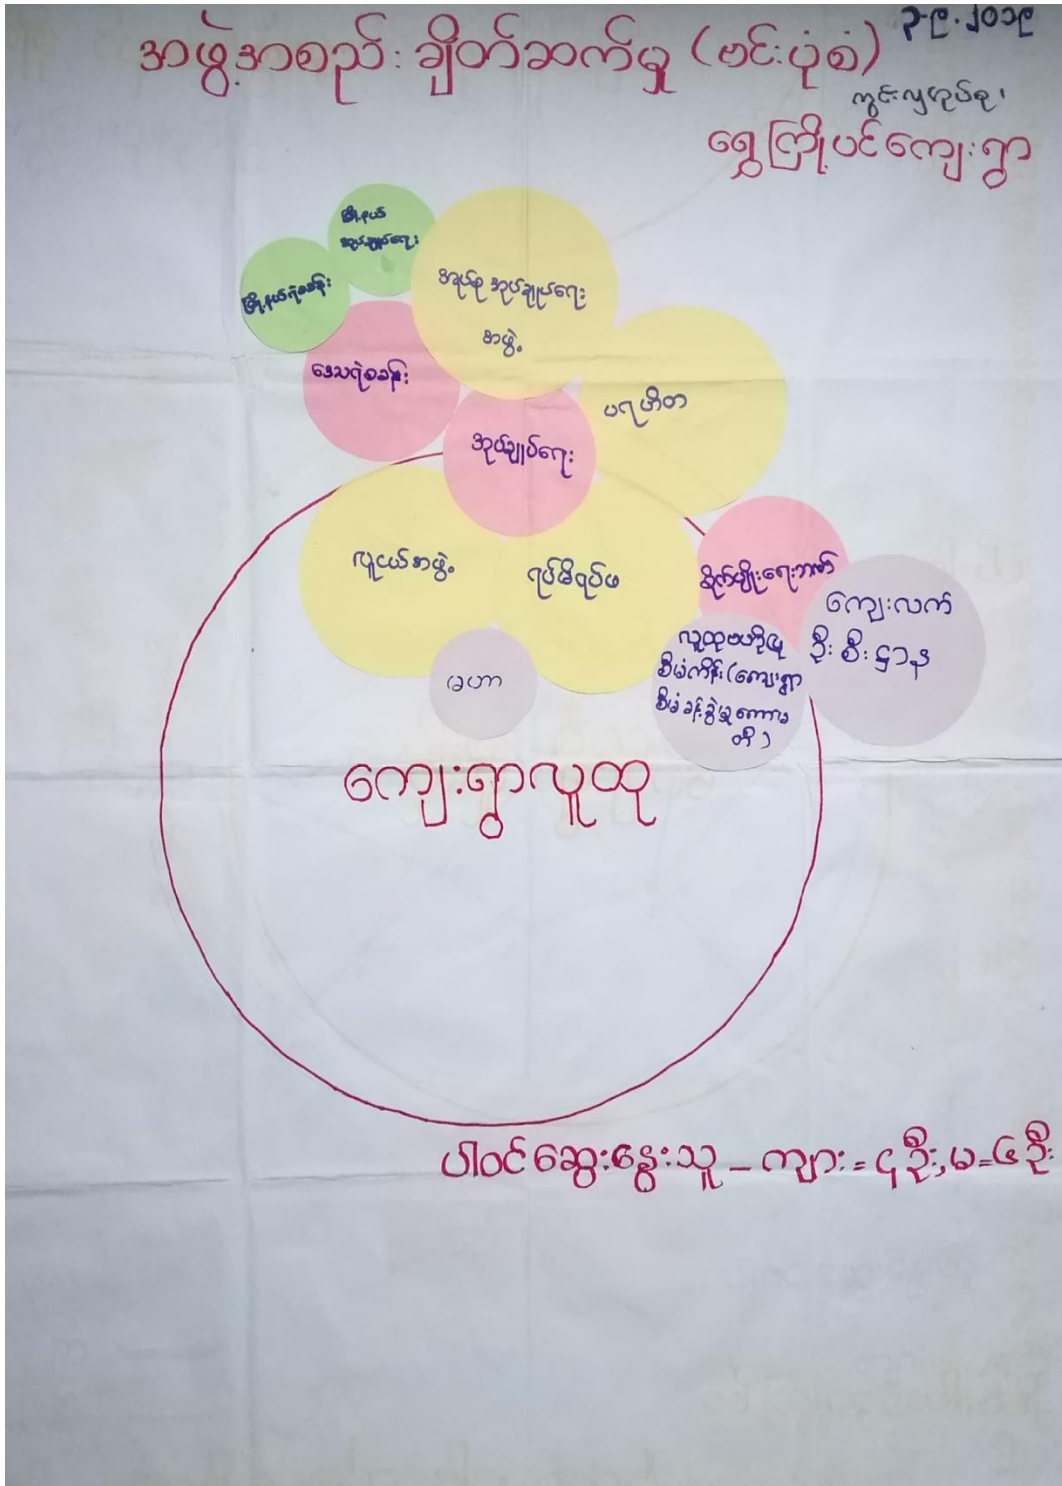 ၃-၉-၂၀၁၉
အဖွဲ့အစည်းချိတ်ဆက်မှု (ဗင်းပုံစံ)
ကွင်းလှအုပ်စု၊
ရွှေကြို့ပင်ကျေးရွာ
မြို့နယ်
အုပ်ချုပ်ရေး
မြို့နယ်ရဲစခန်း
အုပ်စုအုပ်ချုပ်ရေး
အဖွဲ့
ဒေသရဲစခန်း
ပရဟိတ
အုပ်ချုပ်ရေး
လူငယ်အဖွဲ့
ရပ်မိရပ်ဖ
စိုက်ပျိုးရေးဘဏ်
ကျေးလက်
ဦးစီးဌာန
လူထုဗဟိုပြု
စီမံကိန်း(ကျေးရွာ
စီမံခန့်ခွဲမှုကော်မ
တီ)
မဟာ
ကျေးရွာလူထု
ပါဝင်ဆွေးနွေးသူ - ကျား = ၄ဦး, မ=၆ဦး